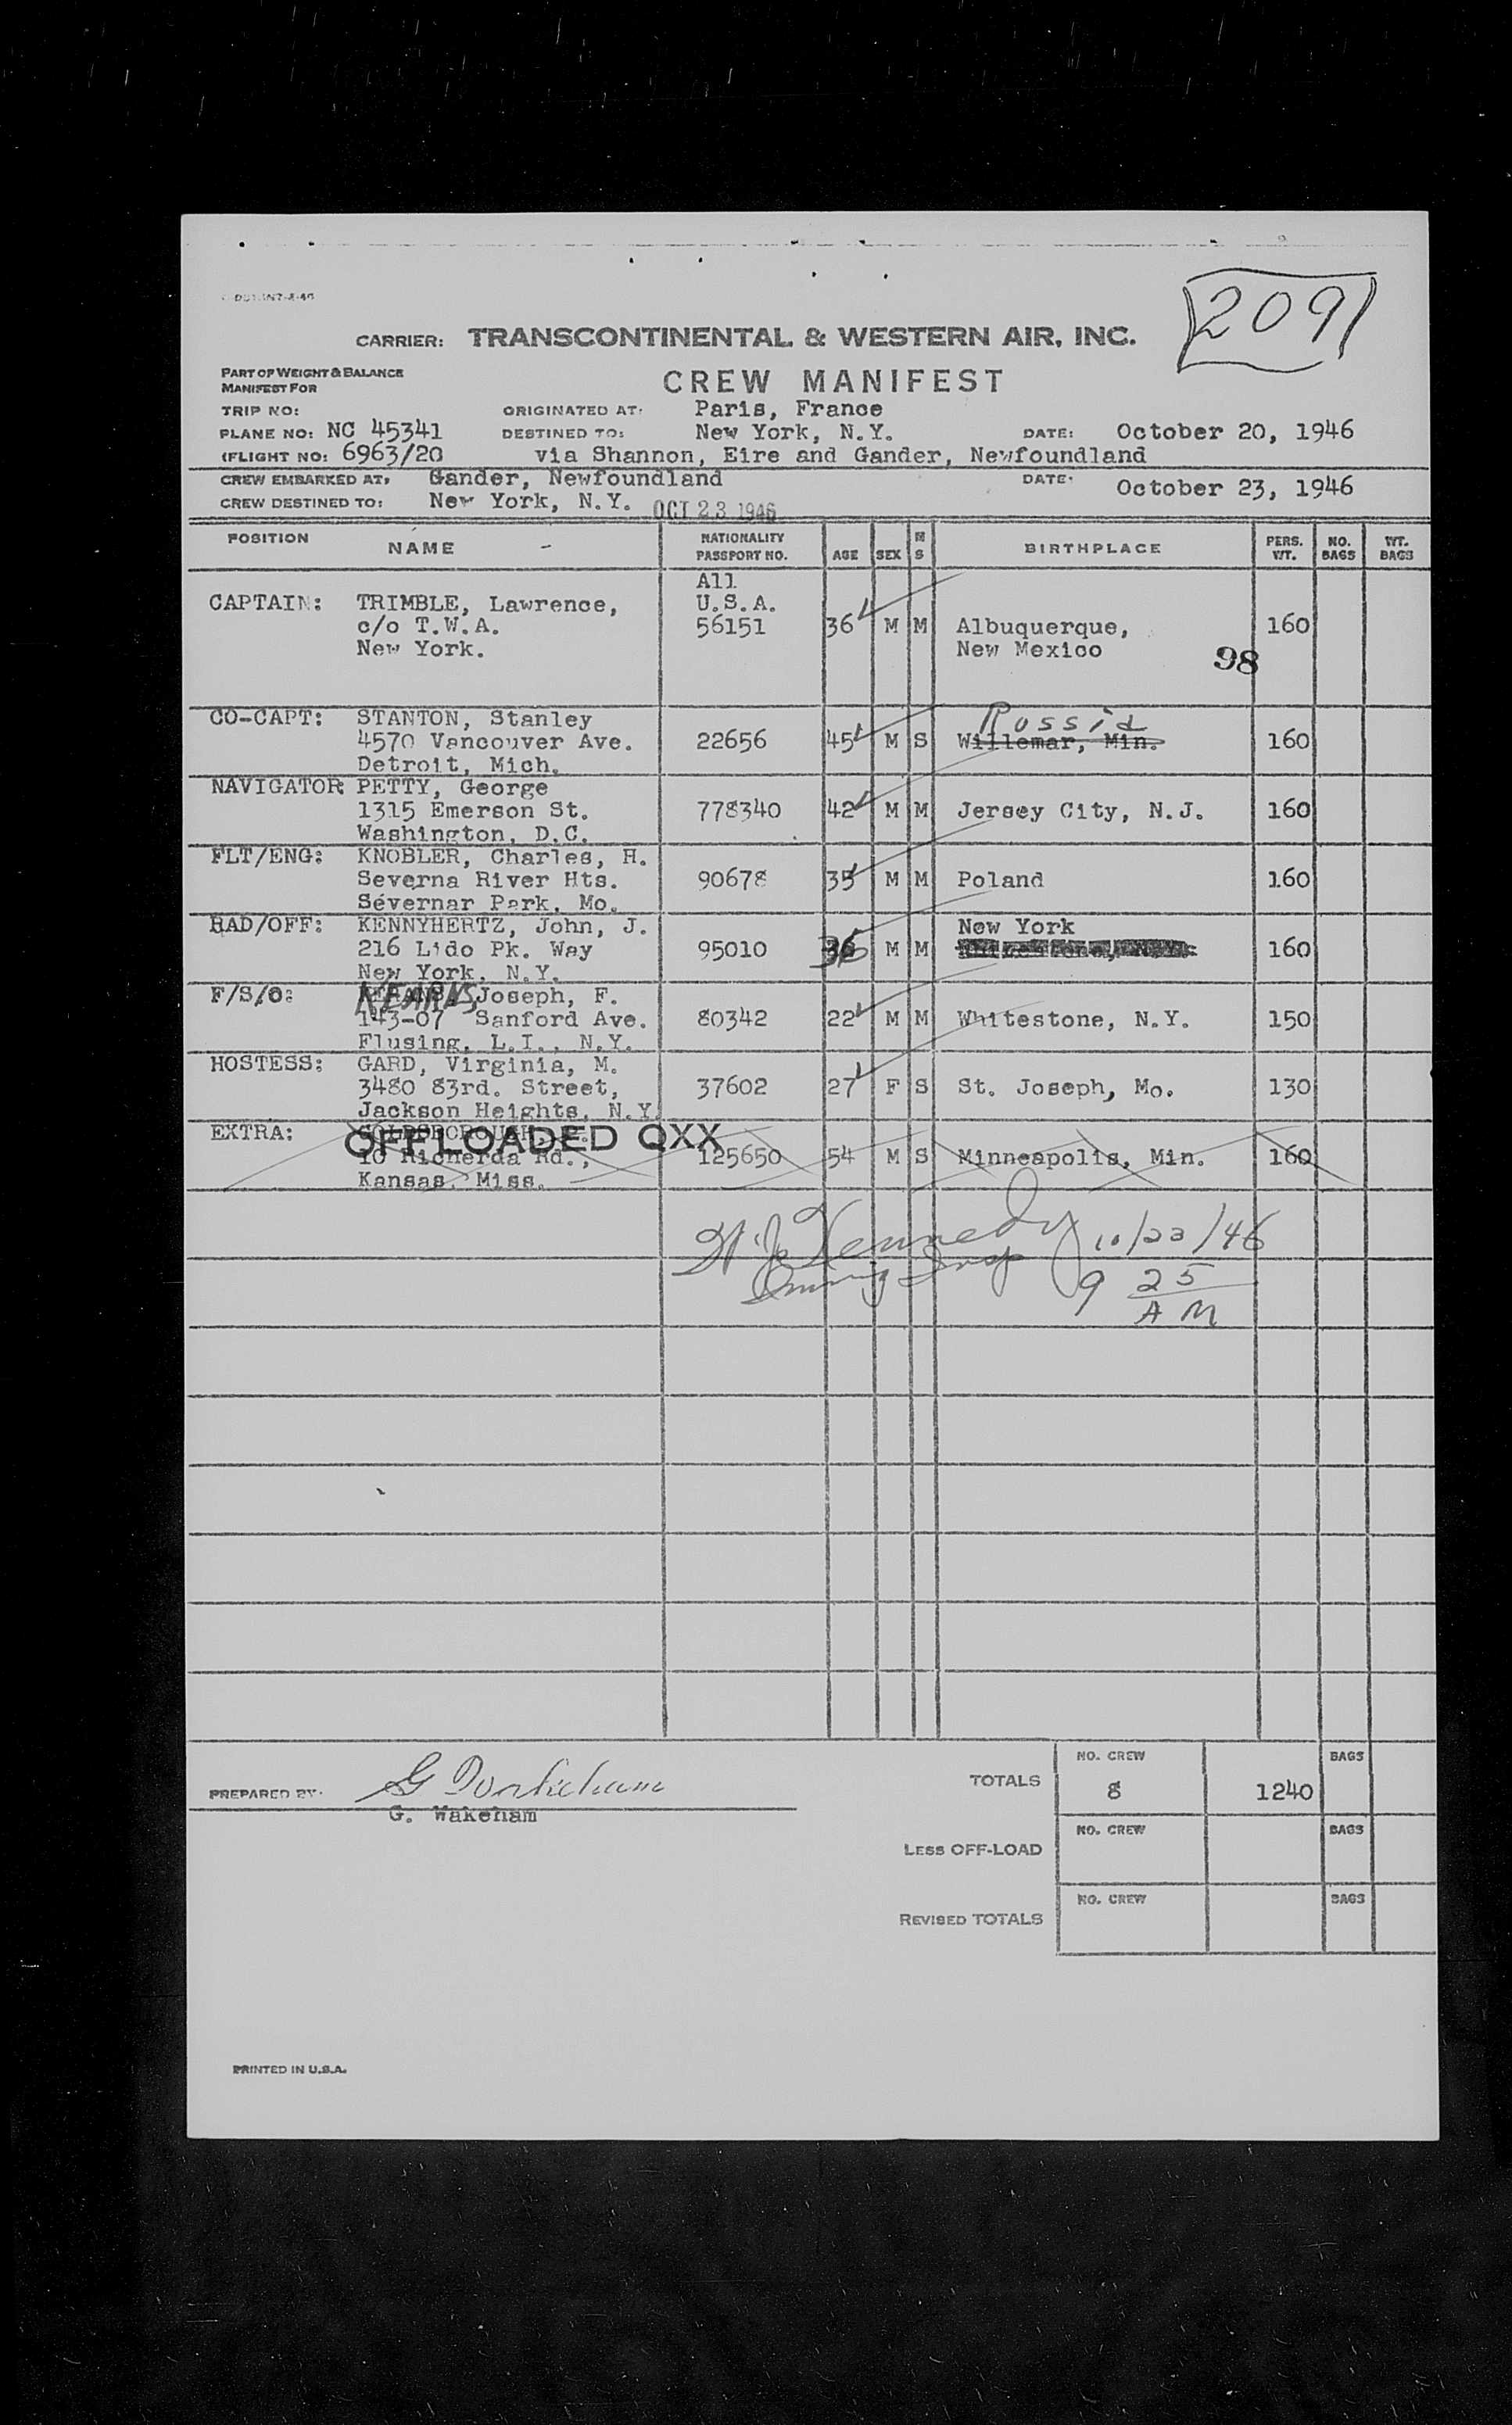 2091
CARRIER: TRANSCONTINENTAL & WESTERN AIR, INC.
PART OF WEIGHT & BALANCE
MANIFEST FOR
CREW MANIFEST
TRIP NO: ORIGINATED AT: Paris, France
PLANE NO: NC 45341 DESTINED TO: New York, N.Y. DATE: October 20, 1946
FLIGHT NO: 6963/20 via Shannon, Eire and Gander, Newfoundland
CREW EMBARKED AT: Gander, Newfoundland DATE: October 23, 1946
CREW DESTINED TO: New York, N.Y. OCT 23 1946
POSITION NAME NATIONALITY PASSPORT NO. AGE SEX M S BIRTHPLACE PERS. WT. NO. BAGS WT. BAGS
All
CAPTAIN: TRIMBLE, Lawrence, U.S.A.
c/o T.W.A. 56151 36 M M Albuquerque, 160
New York. New Mexico 98
CO-CAPT: STANTON, Stanley Russia
4570 Vancouver Ave. 22656 45 M S Willemar, Min. 160
Detroit, Mich.
NAVIGATOR PETTY, George
1315 Emerson St. 778340 42 M M Jersey City, N.J. 160
Washington, D.C.
FLT/ENG: KNOBLER, Charles, H.
Severna River Hts. 90678 35 M M Poland 160
Severnar Park, Mo.
RAD/OFF: KENNYHERTZ, John, J. New York
216 Lido Pk. Way 95010 36 M M 160
New York, N.Y.
F/S/O: KEARNS, Joseph, F.
143-07 Sanford Ave. 80342 22 M M Whitestone, N.Y. 150
Flusing, L.I., N.Y.
HOSTESS: GARD, Virginia, M.
3480 83rd. Street, 37602 27 F S St. Joseph, Mo. 130
Jackson Heights, N.Y.
EXTRA: OFFLOADED QXX
10 Richerda Rd., 125650 54 M S Minneapolis, Min. 160
Kansas, Miss.
Kennedy 10/23/46
Immig Insp 9 25
AM
PREPARED BY: G Wakeham
G. Wakeham
TOTALS NO. CREW 8 1240 BAGS
LESS OFF-LOAD NO. CREW BAGS
REVISED TOTALS NO. CREW BAGS
PRINTED IN U.S.A.